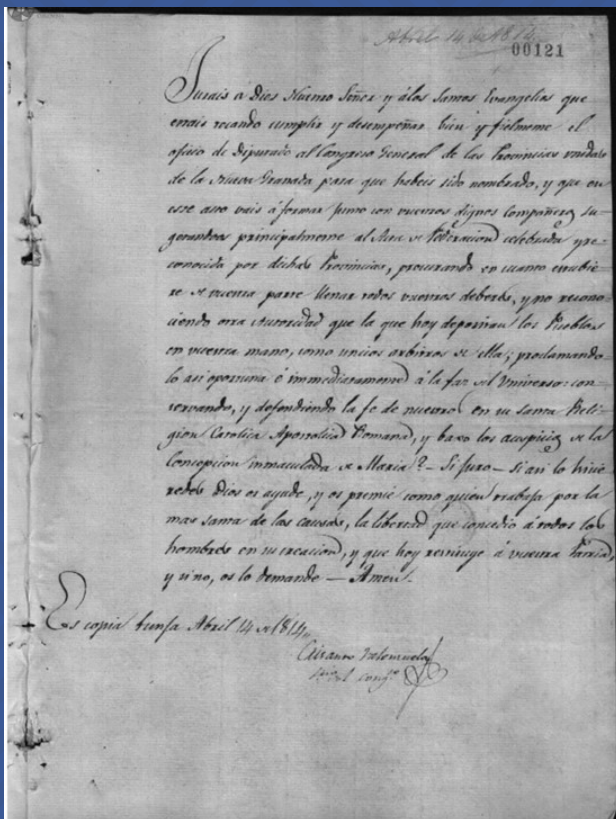 Abril 14 de 1814
00121
Jurais a Dios Nuestro Señor y á los Santos Evangelios que
entrais cumplir y desempeñar bien y fielmente el
oficio de Diputado al Congreso General de las Provincias unidas
de la Nueva Granada para que habeis sido nombrado, y que en
este acto vais á formar junto con vuestros dignos compañeros su
getandoos principalmente al Acta de Federacion celebrada y re
conocida por dichas Provincias, procurando en cuanto estubie
re de vuestra parte llenar todos vuestros deberes, y no recono
ciendo otra Autoridad que la que hoy depositan los Pueblos
en vuestra mano, como unicos arbitros de ella; proclamando
lo asi oportuna é immediatamente á la faz del Universo: con
servando, y defendiendo la fe de nuestros en su santa Reli
gion Catolica Apostolica Romana, y baxo los auspicios de la
Concepcion immaculada de Maria? - Si juro - Si asi lo hicie
redes Dios os ayude, y os premie como quien trabaja por la
mas santa de las causas, la libertad que concedio á todos los
hombres en su creacion, y que hoy restituye á vuestra Patria,
y si no, os lo demande - Amen.
Es copia Tunja Abril 14 de 1814
Crisanto Valenzuela
Srio del Congo